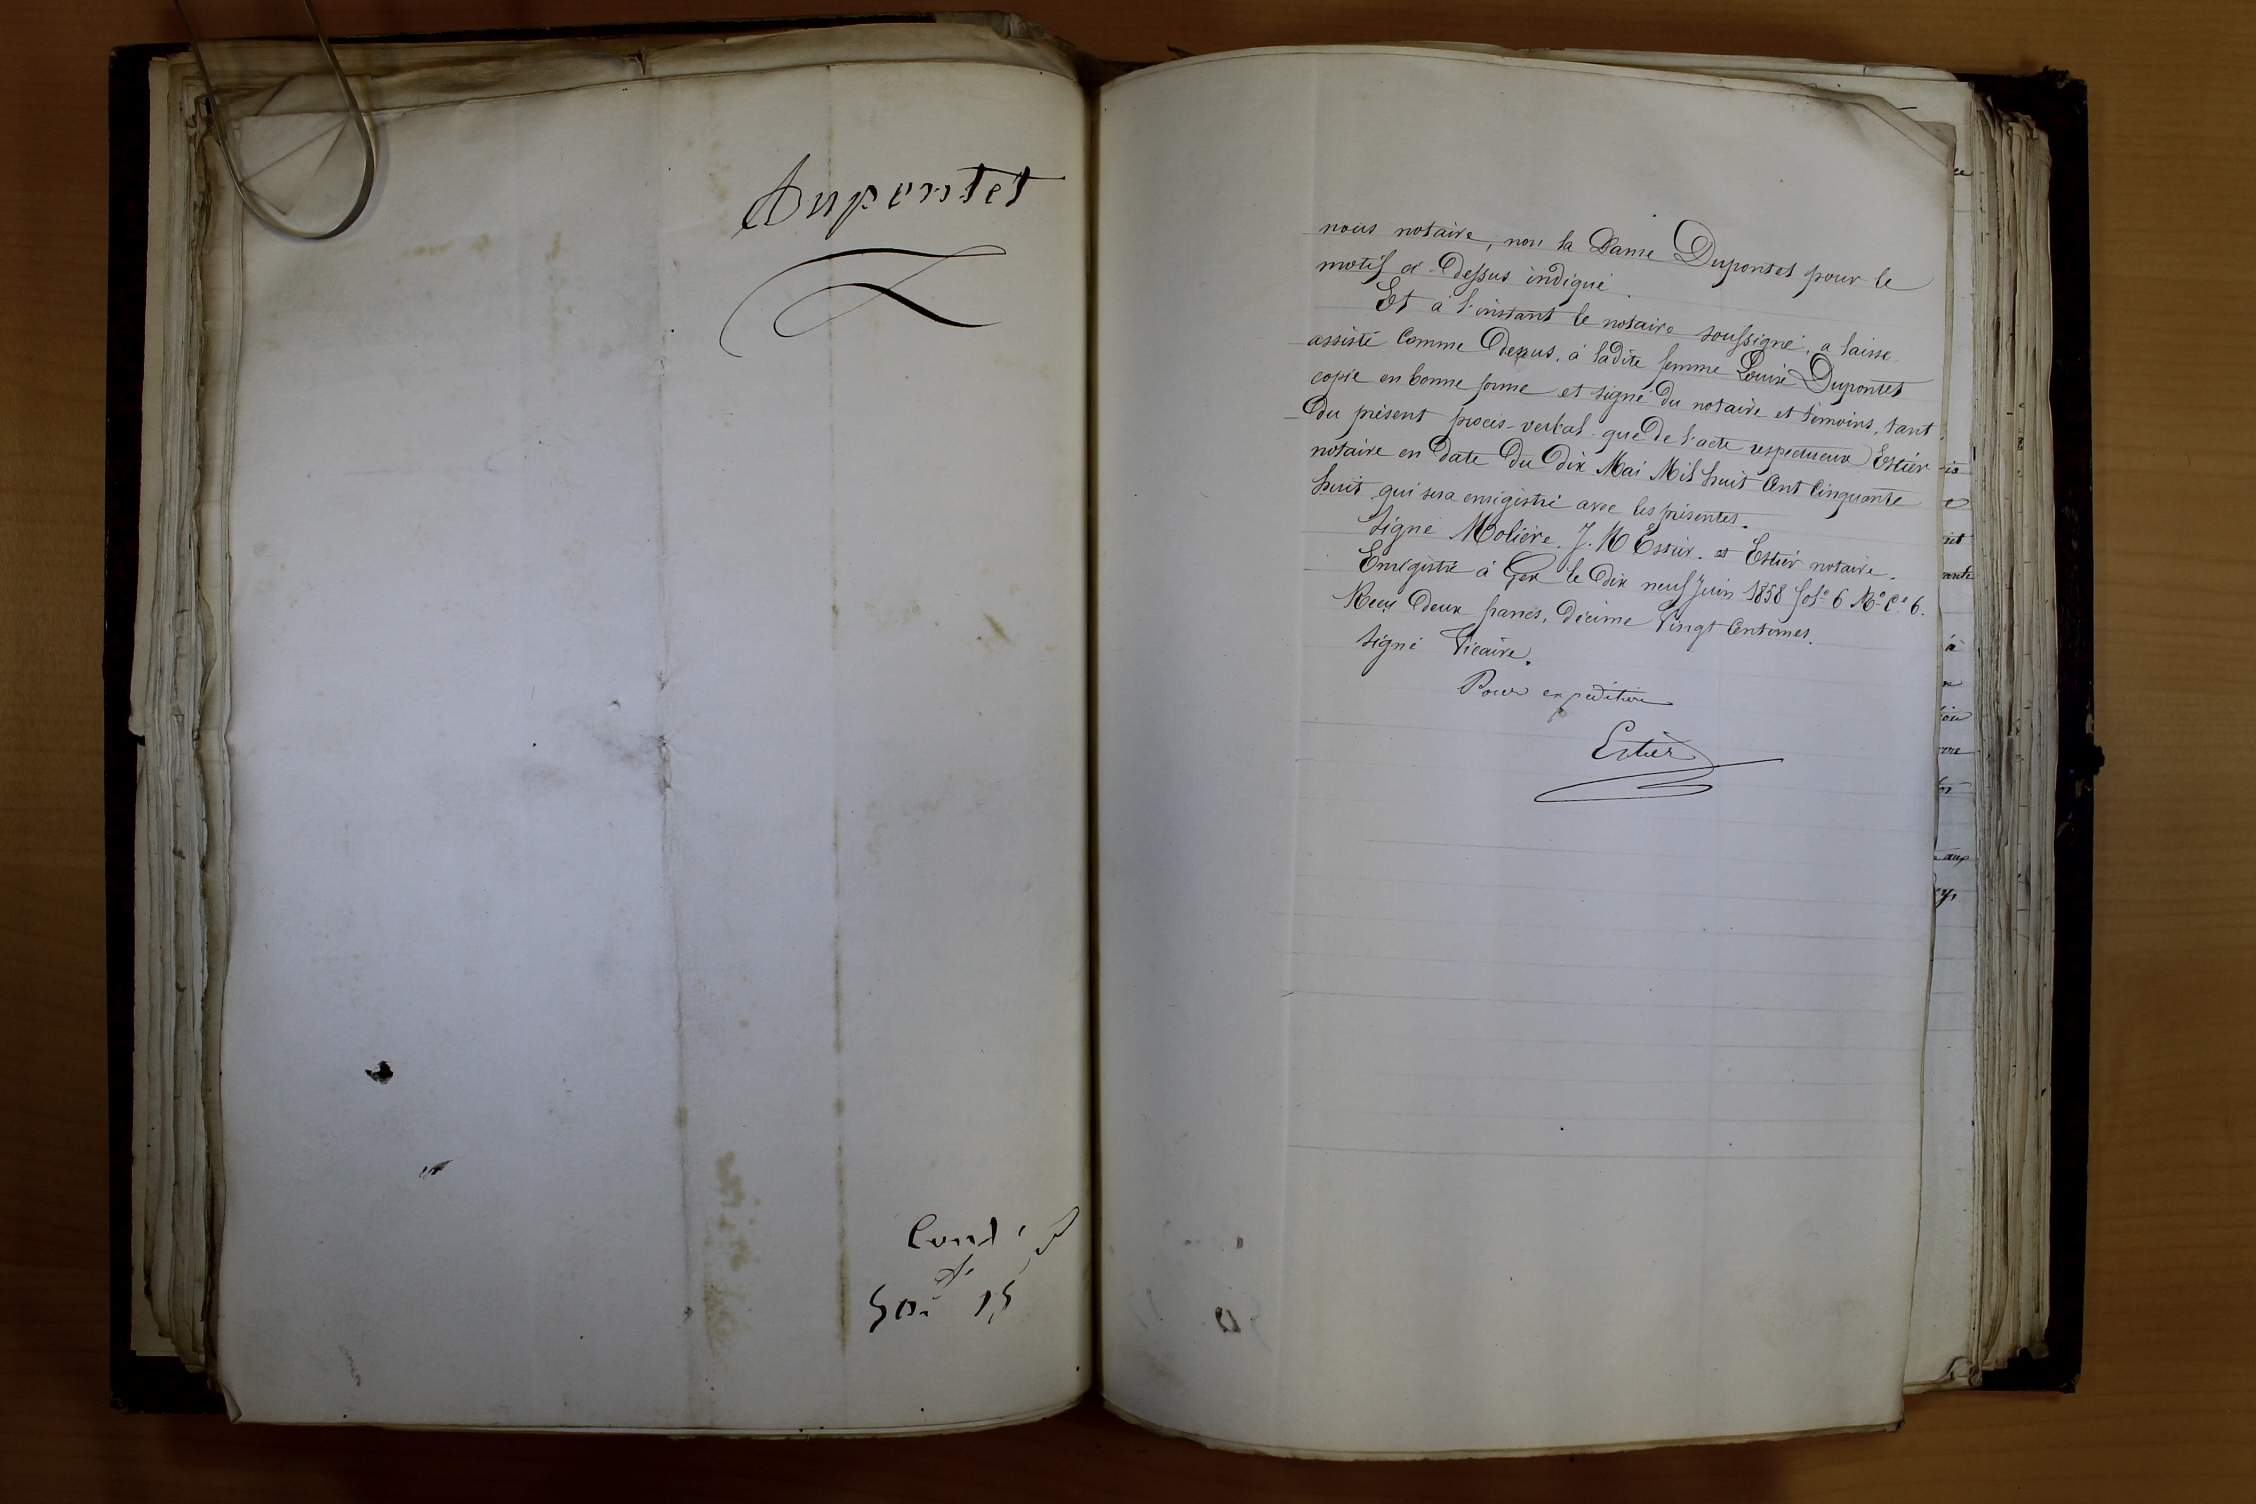 Dupontet
nous notaire, non la Dame Dupontet pour le
motif ci-dessus indiqué.
Et à l'instant le notaire soussigné, a laissé
assisté comme dessus, à ladite femme Louise Dupontet
copie en bonne forme et signé du notaire et témoins, tant
du présent procès-verbal que de l'acte respectueux Estier
notaire en date du dix Mai Mil huit Cent Cinquante
huit qui sera enrigistré avec les présentes.
Signé Molière. J. M et Estier notaire.
Enrigistré à Gex le dix neuf Juin 1858 fol.° 6 R.° C.e 6.
Reçu deux francs, décime vingt Centimes.
Signé Vicaire.
Pour expédition
Estier